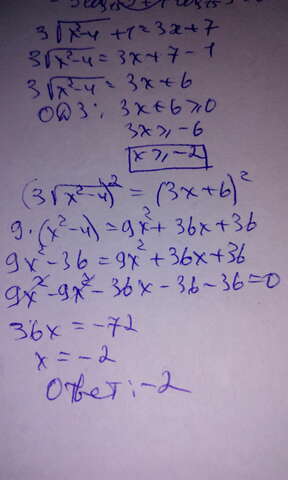 3√x²-4 + 1 = 3x + 7
3√x²-4 = 3x + 7 - 1
3√x²-4 = 3x + 6
ОДЗ: 3x + 6 ≥ 0
3x ≥ -6
x ≥ -2
(3√x²-4)² = (3x+6)²
9·(x²-4) = 9x² + 36x + 36
9x² - 36 = 9x² + 36x + 36
9x² - 9x² - 36x - 36 - 36 = 0
36x = -72
x = -2
Ответ: -2